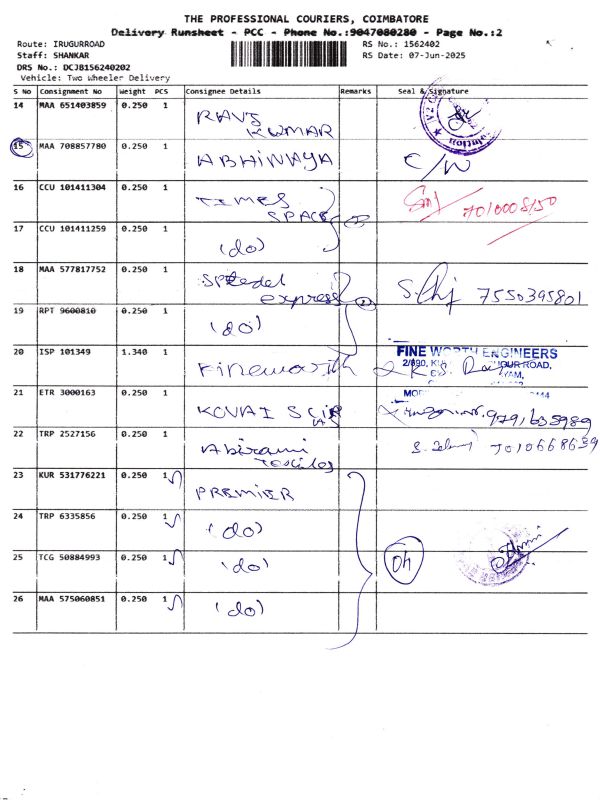 THE PROFESSIONAL COURIERS, COIMBATORE
Delivery Runsheet - PCC - Phone No.:9047080280 - Page No.:2
Route: IRUGURROAD
RS No.: 1562402
Staff: SHANKAR
RS Date: 07-Jun-2025
DRS No.: DCJB156240202
Vehicle: Two Wheeler Delivery
S No Consignment No Weight PCS Consignee Details Remarks Seal & Signature
14 MAA 651403859 0.250 1 RAVI KUMAR
15 MAA 708857780 0.250 1 ABHINAYA C/W
16 CCU 101411304 0.250 1 TIMES SPACE
17 CCU 101411259 0.250 1 (do)
18 MAA 577817752 0.250 1 Speedel express 7550395801
19 RPT 9600810 0.250 1 (do)
20 ISP 101349 1.340 1 Fineworth FINE WORTH ENGINEERS
21 ETR 3000163 0.250 1 KOVAI
22 TRP 2527156 0.250 1 Abirami Textiles 7010668639
23 KUR 531776221 0.250 1 PREMIER
24 TRP 6335856 0.250 1 (do)
25 TCG 50884993 0.250 1 (do) 04
26 MAA 575060851 0.250 1 (do)